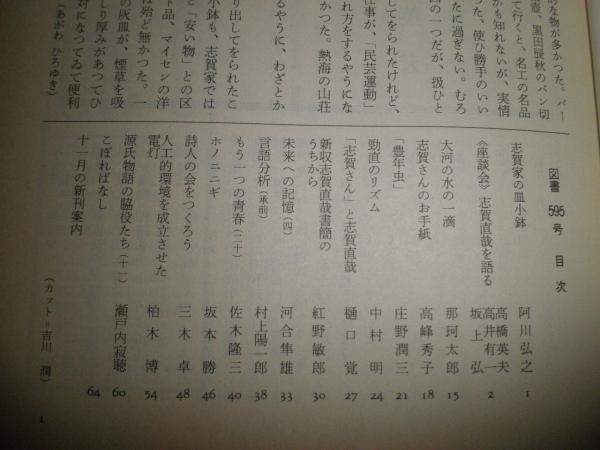 的な物が多かつた。バー
て行くと、名工の名品
憲、黒田辰秋のパン切
かも知れないが、実情
つた、使ひ勝手のいい
たに過ぎない。むろ
四の一つだが、扱ひと
してをられたけれど、
仕事が、「民芸運動」
れ方をするやうにな
かつた。熱海の山荘
るやうに、わざとか
り出してをられたこ
小鉢も、志賀家では
と「安い物」との区
ト品、マイセンの洋
は殆ど無かつた。一
の灰皿が、煙草を吸
しり厚みがあつてひ
対になつてゐて便利
(あがわ ひろゆき)
図書 595号 目次
志賀家の皿小鉢 阿川弘之 1
《座談会》志賀直哉を語る 高橋英夫 高井有一 坂上弘 2
大河の水の一滴 那珂太郎 15
志賀さんのお手紙 高峰秀子 18
「豊年虫」 庄野潤三 21
勁直のリズム 中村明 24
「志賀さん」と志賀直哉 樋口覚 27
新収志賀直哉書簡の
うちから 紅野敏郎 30
未来への記憶(四) 河合隼雄 33
言語分析(承前) 村上陽一郎 38
もう一つの青春(二十) 佐木隆三 40
ホノニニギ 坂本勝 46
詩人の会をつくろう 三木卓 48
人工的環境を成立させた
電灯 柏木博 54
源氏物語の脇役たち(十一) 瀬戸内寂聴 60
こぼればなし 64
十一月の新刊案内
(カット=吉川 潤)
1